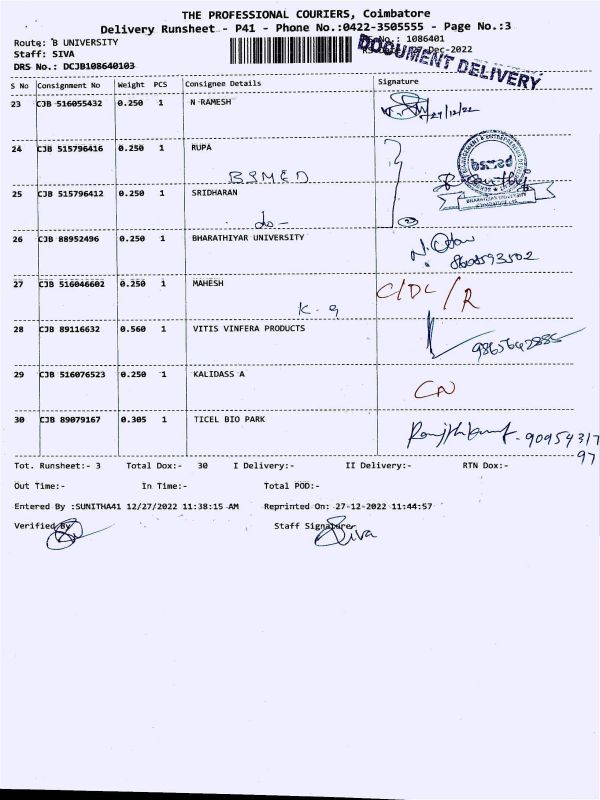 THE PROFESSIONAL COURIERS, Coimbatore
Delivery Runsheet - P41 - Phone No.:0422-3505555 - Page No.:3
Route: B UNIVERSITY
Staff: SIVA
DRS No.: DCJB108640103
No.: 1086401
Dec-2022
DOCUMENT DELIVERY
S No Consignment No Weight PCS Consignee Details Signature
23 CJB 516055432 0.250 1 N RAMESH 27/12/22
24 CJB 515796416 0.250 1 RUPA
BSMED
bsmed
BHARATHIAR UNIVERSITY
25 CJB 515796412 0.250 1 SRIDHARAN
do-
23
26 CJB 88952496 0.250 1 BHARATHIYAR UNIVERSITY
8608593502
27 CJB 516046602 0.250 1 MAHESH C/DL/R
K. 9
28 CJB 89116632 0.560 1 VITIS VINFERA PRODUCTS
9865642885
29 CJB 516076523 0.250 1 KALIDASS A
CN
30 CJB 89079167 0.305 1 TICEL BIO PARK
90954317
97
Tot. Runsheet:- 3 Total Dox:- 30 I Delivery:- II Delivery:- RTN Dox:-
Out Time:- In Time:- Total POD:-
Entered By :SUNITHA41 12/27/2022 11:38:15 AM Reprinted On: 27-12-2022 11:44:57
Verified By Staff Signaturer
Siva